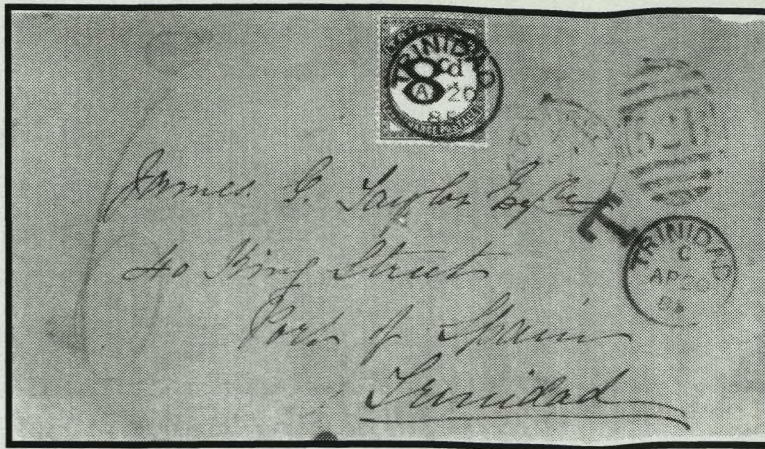 TRINIDAD
8d
A
AP 20
85
T
TRINIDAD
C
AP 20
85
James. G. Taylor Esqre
40 King Street
Port of Spain
Trinidad